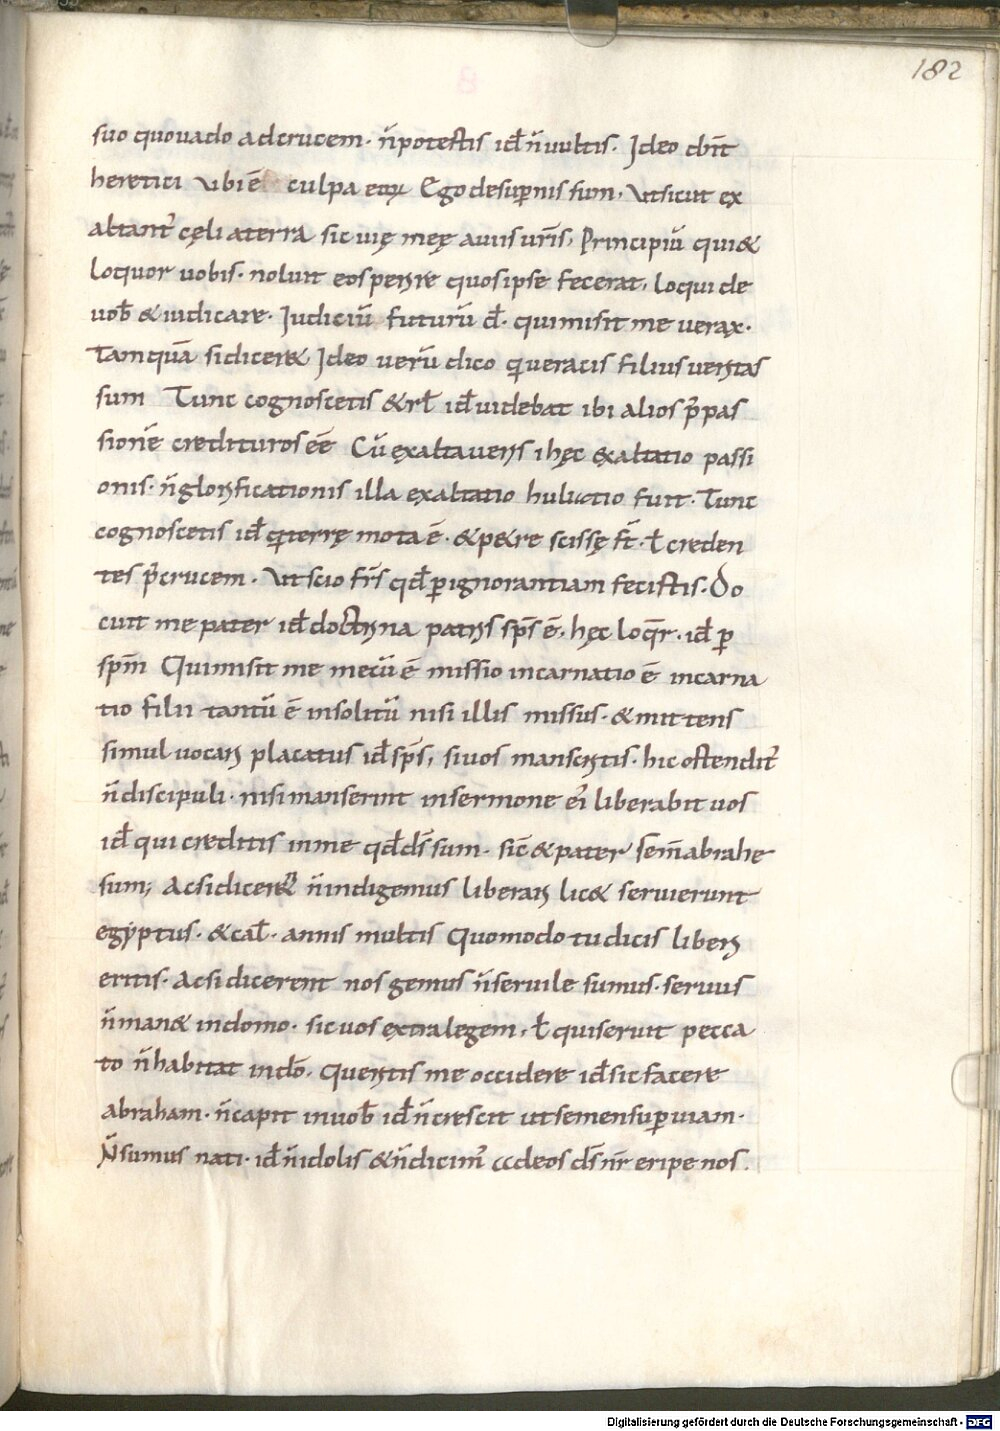 182
suo quo uado ad crucem · n̄ potestis id̄ n̄ uultis · Ideo dn̄t
heretici ubi ē culpa eoꝝ Ego de suꝑnis sum, Ut sicut ex
altant᷑ cęli a terra sic uię męę a uiis ur̄is, Principiū qui &
loquor uobis · noluit eos perire quos ipse fecerat, loqui de
uob̄ & iudicare · Iudiciū futurū d̄ · qui misit me uerax ·
Tamquā si dicer& Ideo uerū dico q̇ ueracis filius ueritas
sum Tunc cognoscetis & rl̄ id̄ uidebat ibi alios p̄ pas
sionē credituros eē Cū exaltaueris ihęc exaltatio passi
onis · n̄ glorificationis illa exaltatio fuit · Tunc
cognoscetis id̄ terrę mota ē · & p&re scissę st̄ · ł creden
tes p̄ crucem · Ut scio fr̄s qd̄ ꝑ ignorantiam fecistis · Do
cuit me pater id̄ doctrina patris sp̄s ē, hęc loqr̄ · id̄ ꝑ
sp̄m Qui misit me mecū ē missio incarnatio ē incarna
tio filii tantū ē insolitū nisi illis missus · & mittens
simul uocari placatus id̄ sp̄s, si uos manseritis · hic ostendit᷑
n̄ discipuli · nisi manserint in sermone ei᷑ liberabit uos
id̄ qui creditis in me qd̄ ds̄ sum · sic̄ & pater sem̄ abrahe
sum; Ac si dicer& n̄ indigemus liberari lic& seruierunt
egyptus · & cal̄ · annis multis Quomodo tu dicis liberi
eritis · Ac si dicerent nos genus n̄ seruile sumus · seruus
n̄ man& in domo · sic uos extra legem, ł qui seruit pecca
to n̄ habitat in dō · Queritis me occidere id̄ sic facere
abraham · n̄ capit in uob̄ id̄ n̄ crescit ut semen suꝑ uiam ·
N̄ sumus nati · id̄ n̄ idolis & n̄ dicim᷑ deos ds̄ nr̄ eripe nos ·
Digitalisierung gefördert durch die Deutsche Forschungsgemeinschaft - DFG